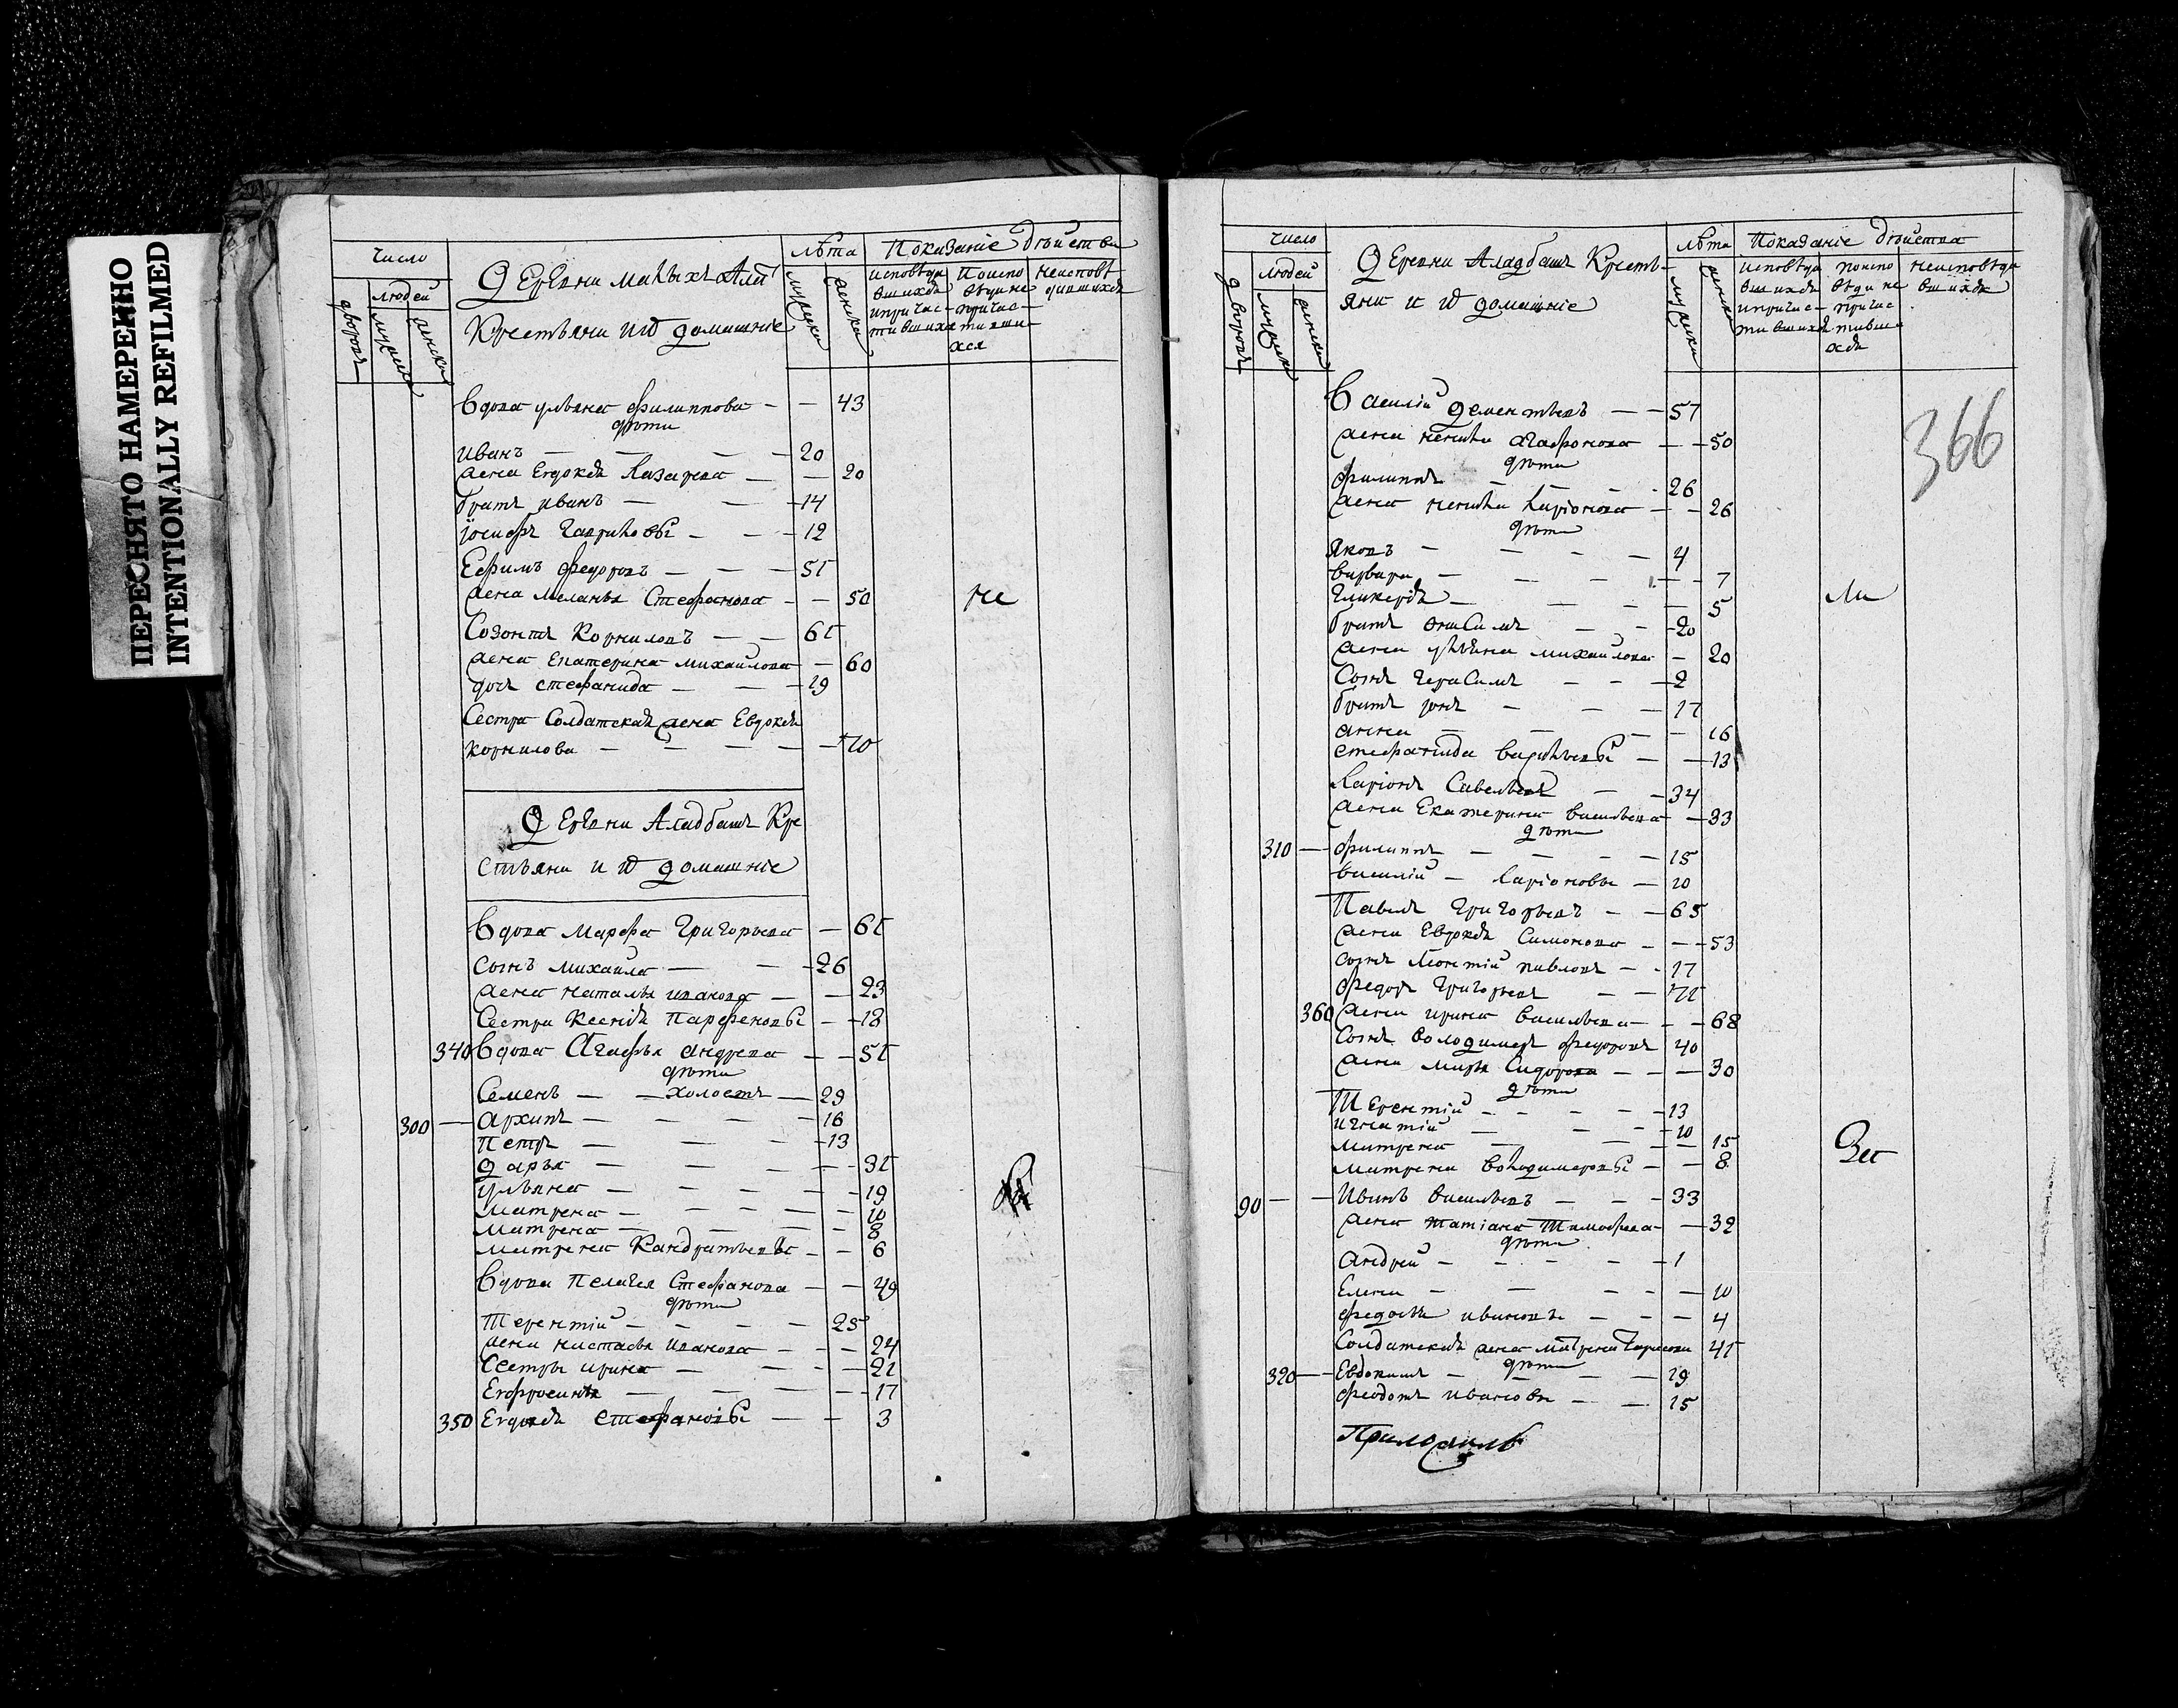 ПЕРЕСНЯТО НАМЕРЕННО
INTENTIONALLY REFILMED
число
людей
дворовъ
мужска
женска
Деревни малыхъ
Крестьяни и ихъ домашніе
лѣта
мужска
женска
Показаніе дѣйства
исповѣда
вшихся
и причас-
тившихся
По испо
вѣди не
причас-
тивши
хся
неисповѣ
давшихся
вдова ульяна филиппова — — 43
дѣти
иванъ — — — — 20
жена Евдокея Лазарева — — 20
братъ иванъ — — — 14
іосифъ Гавриловы — — — 12
Ефимъ федоровъ — — — 51
жена меланья Стефанова — — 50
не
Созонтъ Корниловъ — — 61
жена Екатерина михайлова — 60
дочь стефанида — — — 19
Сестра Солдатская жена Евдокея
корнилова — — — — — 70
Деревни Аладбашъ Кре
стьяни и ихъ домашніе
вдова марфа Григорьева — 61
сынъ михайла — — — 26
жена наталья иванова — — 23
Сестра Ксенія Парфеновы — — 18
340 вдова Агафья андреева — — 51
дѣти
Семенъ — — холостъ — 29
300 — архипъ — — — — 16
петръ — — — — 13
дарья — — — — — 31
ульяна — — — — — 19
матрена — — — — — 10
матрена — — — — — 8
матрена Кандратьевы — — 6
вдова пелагея Стефанова — — 49
дѣти
Терентій — — — — 25
жена настасья иванова — — — 24
Сестры ирина — — — — 21
Евфросинья — — — — 17
350 Евдокея Стефановы — — 3
число
людей
дворовъ
мужска
женска
Деревни Аладбашъ Кресть-
яни и ихъ домашніе
лѣта
мужска
женска
Показаніе дѣйства
исповѣда
вшихся
и причас-
тившихся
по испо
вѣди не
причас
тивши
хся
неисповѣда
вшихся
366
Василій дементьевъ — — 57
жена ненила агафонова — — 50
дѣти
филиппъ — — — — 26
жена ненила Ларіонова — — 26
дѣти
яковъ — — — — 4
варвара — — — — — 7
Гликерія — — — — 5
ли
братъ онисимъ — — 20
жена ульяна михайлова — 20
Сынъ герасимъ — — — 2
братъ іона — — — 17
анна — — — — 16
стефанида васильевы — — 13
Ларіонъ Савельевъ — — 34
жена Екатерина васильева — 33
дѣти
310 — филиппъ — — — — 15
василій — Ларіоновы — 10
Павелъ Григорьевъ — — 65
жена Евдокея Симонова — — 53
сынъ Леонтій павловъ — — 17
федоръ Григорьевъ — — 71
360 жена ирина васильева — — 68
Сынъ володимеръ федоровъ 40
жена марья Сидорова — — — 30
дѣти
Терентій — — — — 13
игнатій — — — 10
матрена — — — — 15
матрена володимеровы — — 8
За
90 — — Иванъ васильевъ — — — 33
жена татіана Тимофеева — — 32
дѣти
андрей — — — — — 1
Елена — — — — — 10
федосья ивановы — — — 4
Солдатская жена матрена 41
дѣти
320 — Евдокимъ — — — — 19
феодотъ ивановы — — 15